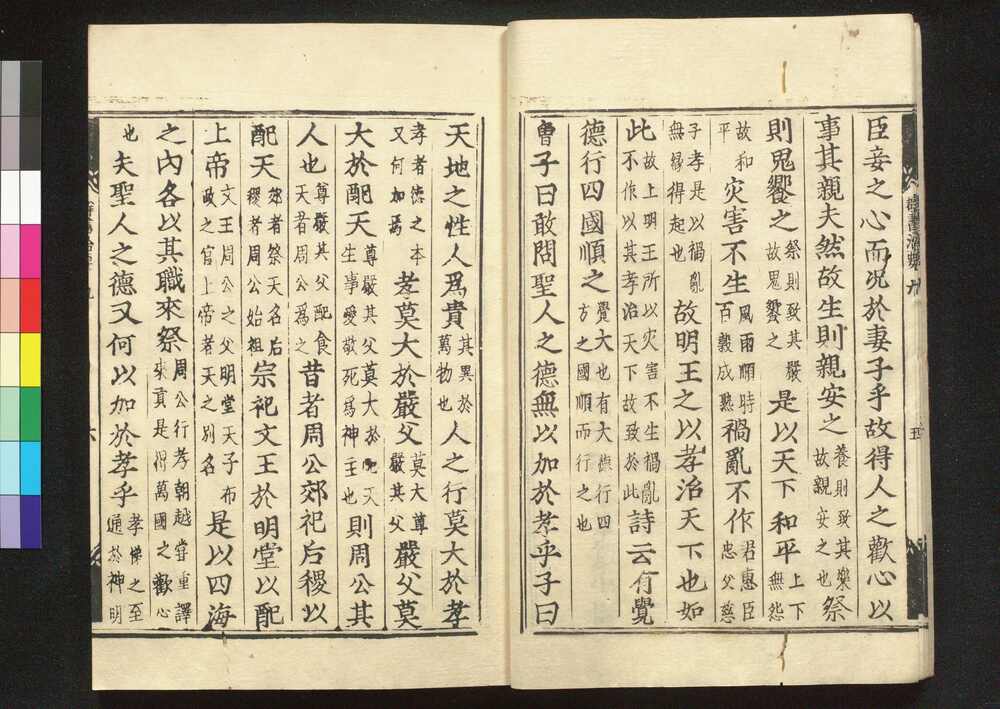 臣妾之心而况於妻子乎故得人之歡心以
事其親夫然故生則親安之養則致其樂故親安之也祭
則鬼饗之祭則致其嚴故鬼饗之是以天下和平上下無怨
故和平灾害不生風雨順時百穀成熟禍亂不作君惠臣忠父慈
子孝是以禍亂無緣得起也故明王之以孝治天下也如
此故上明王所以灾害不生禍亂不作以其孝治天下故致於此詩云有覺
德行四國順之覺大也有大德行四方之國順而行之也
曾子曰敢問聖人之德無以加於孝乎子曰
五
天地之性人爲貴其異於萬物也人之行莫大於孝
孝者德之本又何加焉孝莫大於嚴父莫大尊嚴其父嚴父莫
大於配天尊嚴其父莫大於配天生事愛敬死爲神主也則周公其
人也尊嚴其父配食天者周公爲之昔者周公郊祀后稷以
配天郊者祭天名后稷者周公始祖宗祀文王於明堂以配
上帝文王周公之父明堂天子布政之宮上帝者天之別名是以四海
之內各以其職來祭周公行孝朝越甞重譯來貢是得萬國之歡心
也夫聖人之德又何以加於孝乎孝悌之至通於神明
六